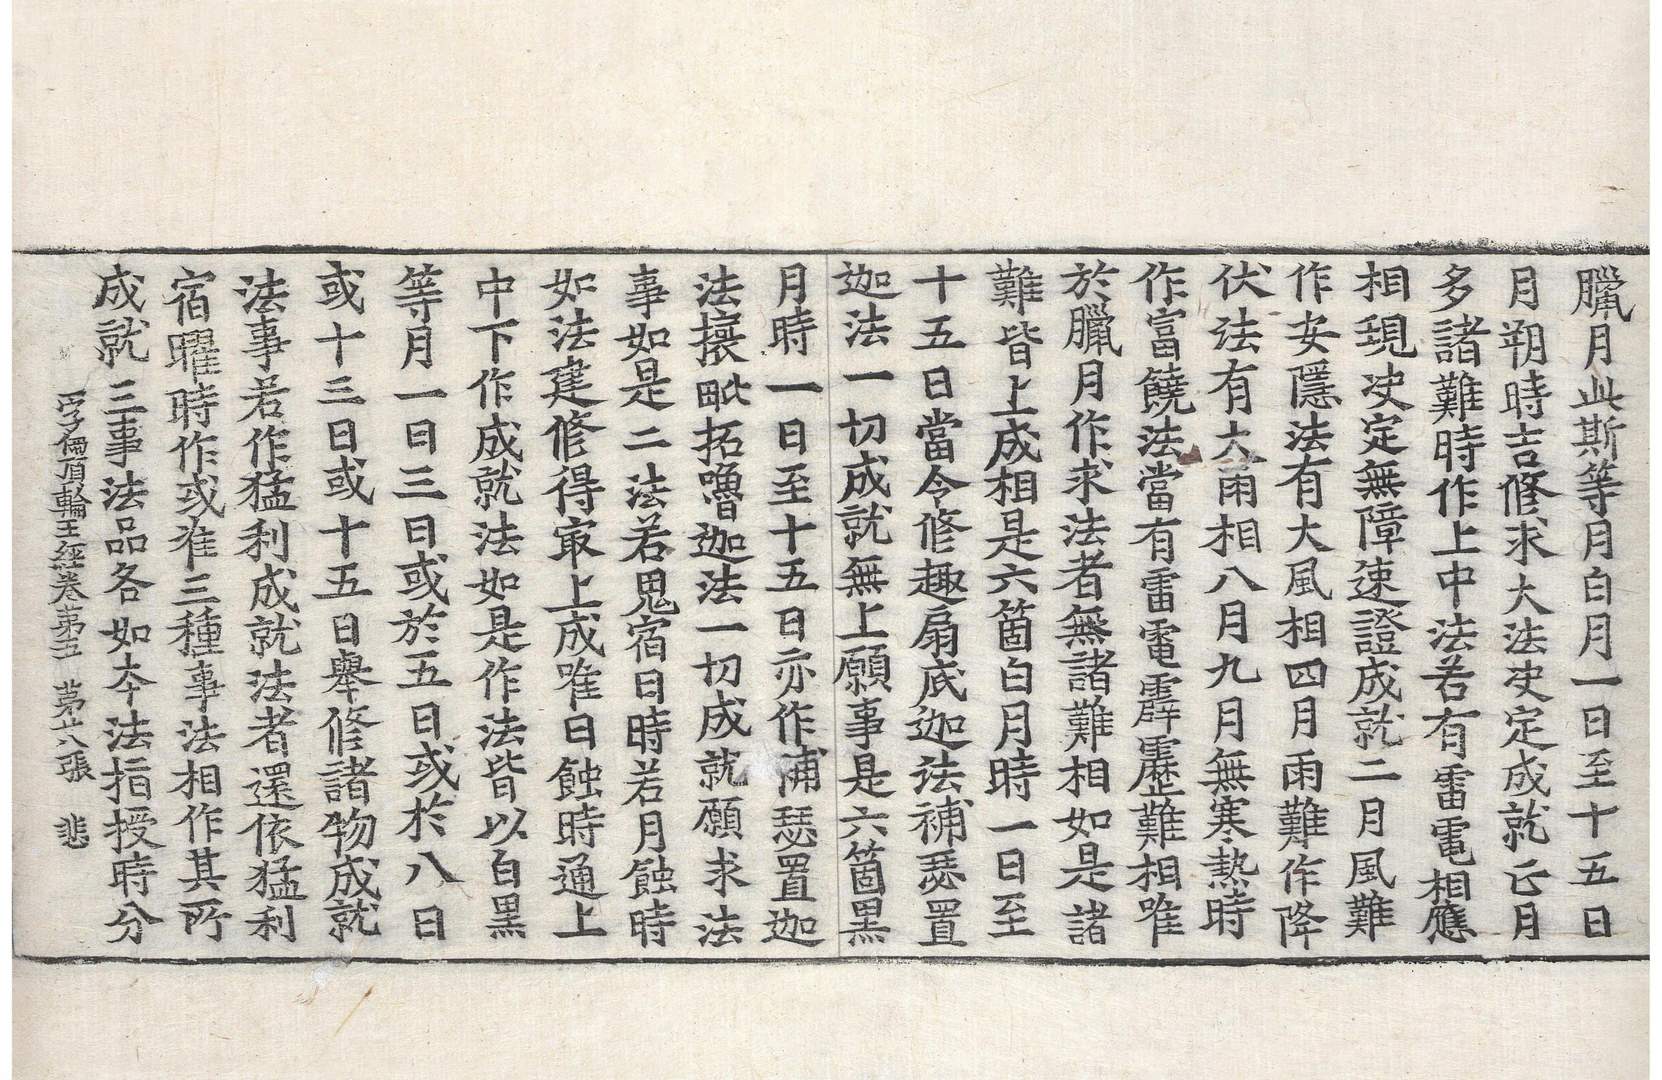 臘月此斯等月白月一日至十五日
月朔時吉修求大法決定成就正月
多諸難時作上中法若有雷電相應
相現決定無障速證成就二月風難
作安隱法有大風相四月雨難作降
伏法有大雨相八月九月無寒熱時
作富饒法當有雷電霹靂難相唯
於臘月作求法者無諸難相如是諸
難皆上成相是六箇白月時一日至
十五日當令修趣扇底迦法補瑟置
迦法一切成就無上願事是六箇黑
月時一日至十五日亦作補瑟置迦
法攘毗拓嚕迦法一切成就願求法
事如是二法若鬼宿日時若月蝕時
如法建修得冣上成唯日蝕時通上
中下作成就法如是作法皆以白黑
等月一日三日或於五日或於八日
或十三日或十五日舉修諸物成就
法事若作猛利成就法者還依猛利
宿曜時作或准三種事法相作其所
成就三事法品各如本法指授時分
字佛頂輪王經卷第五 第廿八張 悲